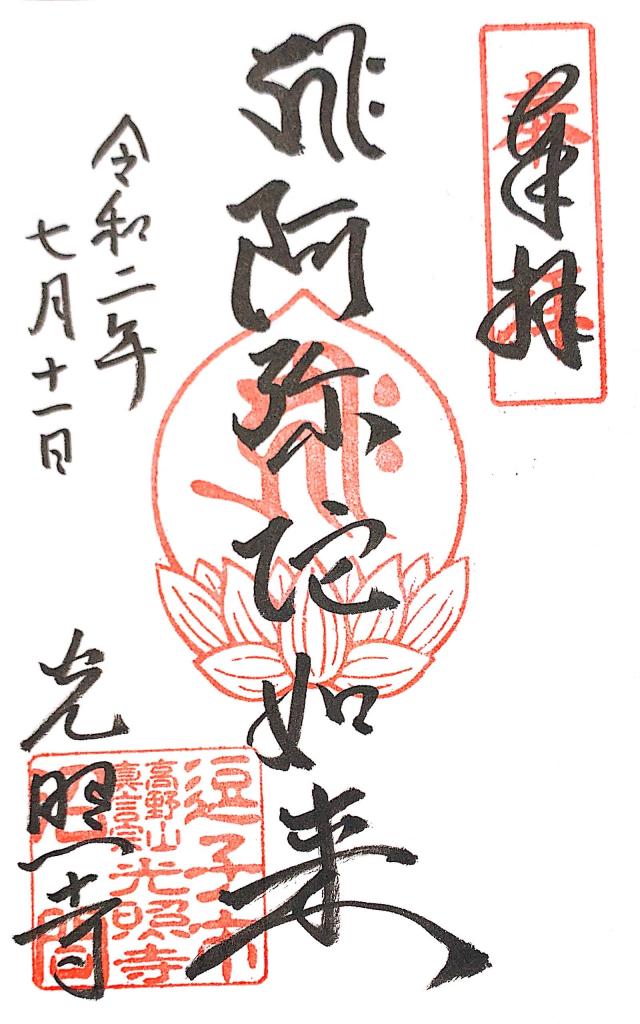 奉拝
奉拝
𑖮𑖿𑖨𑖱𑖾阿弥陀如来
𑖮𑖿𑖨𑖱𑖾
令和二年
七月十一日
光照寺
逗子市
高野山
眞言宗
光照寺
沼間